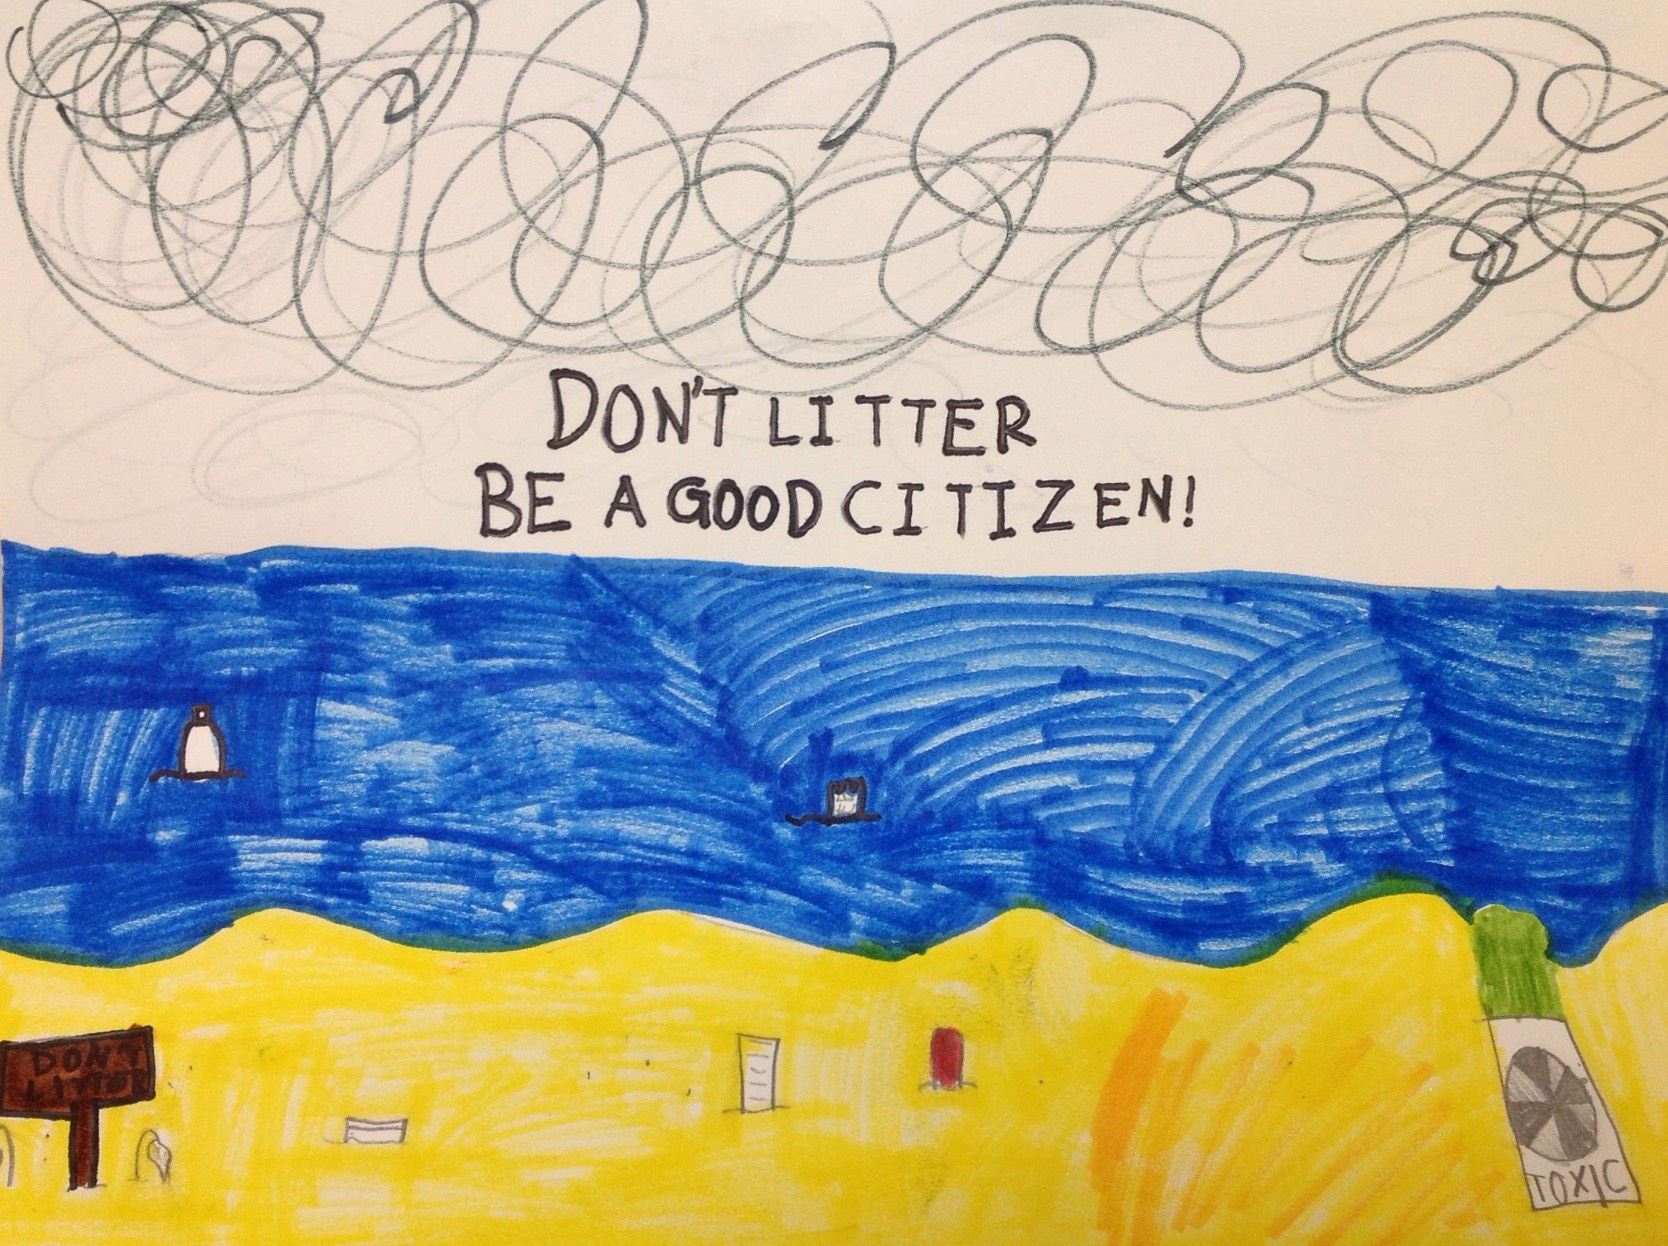 DON'T LITTER
BE A GOOD CITIZEN!
DON'T
LITTER
TOXIC